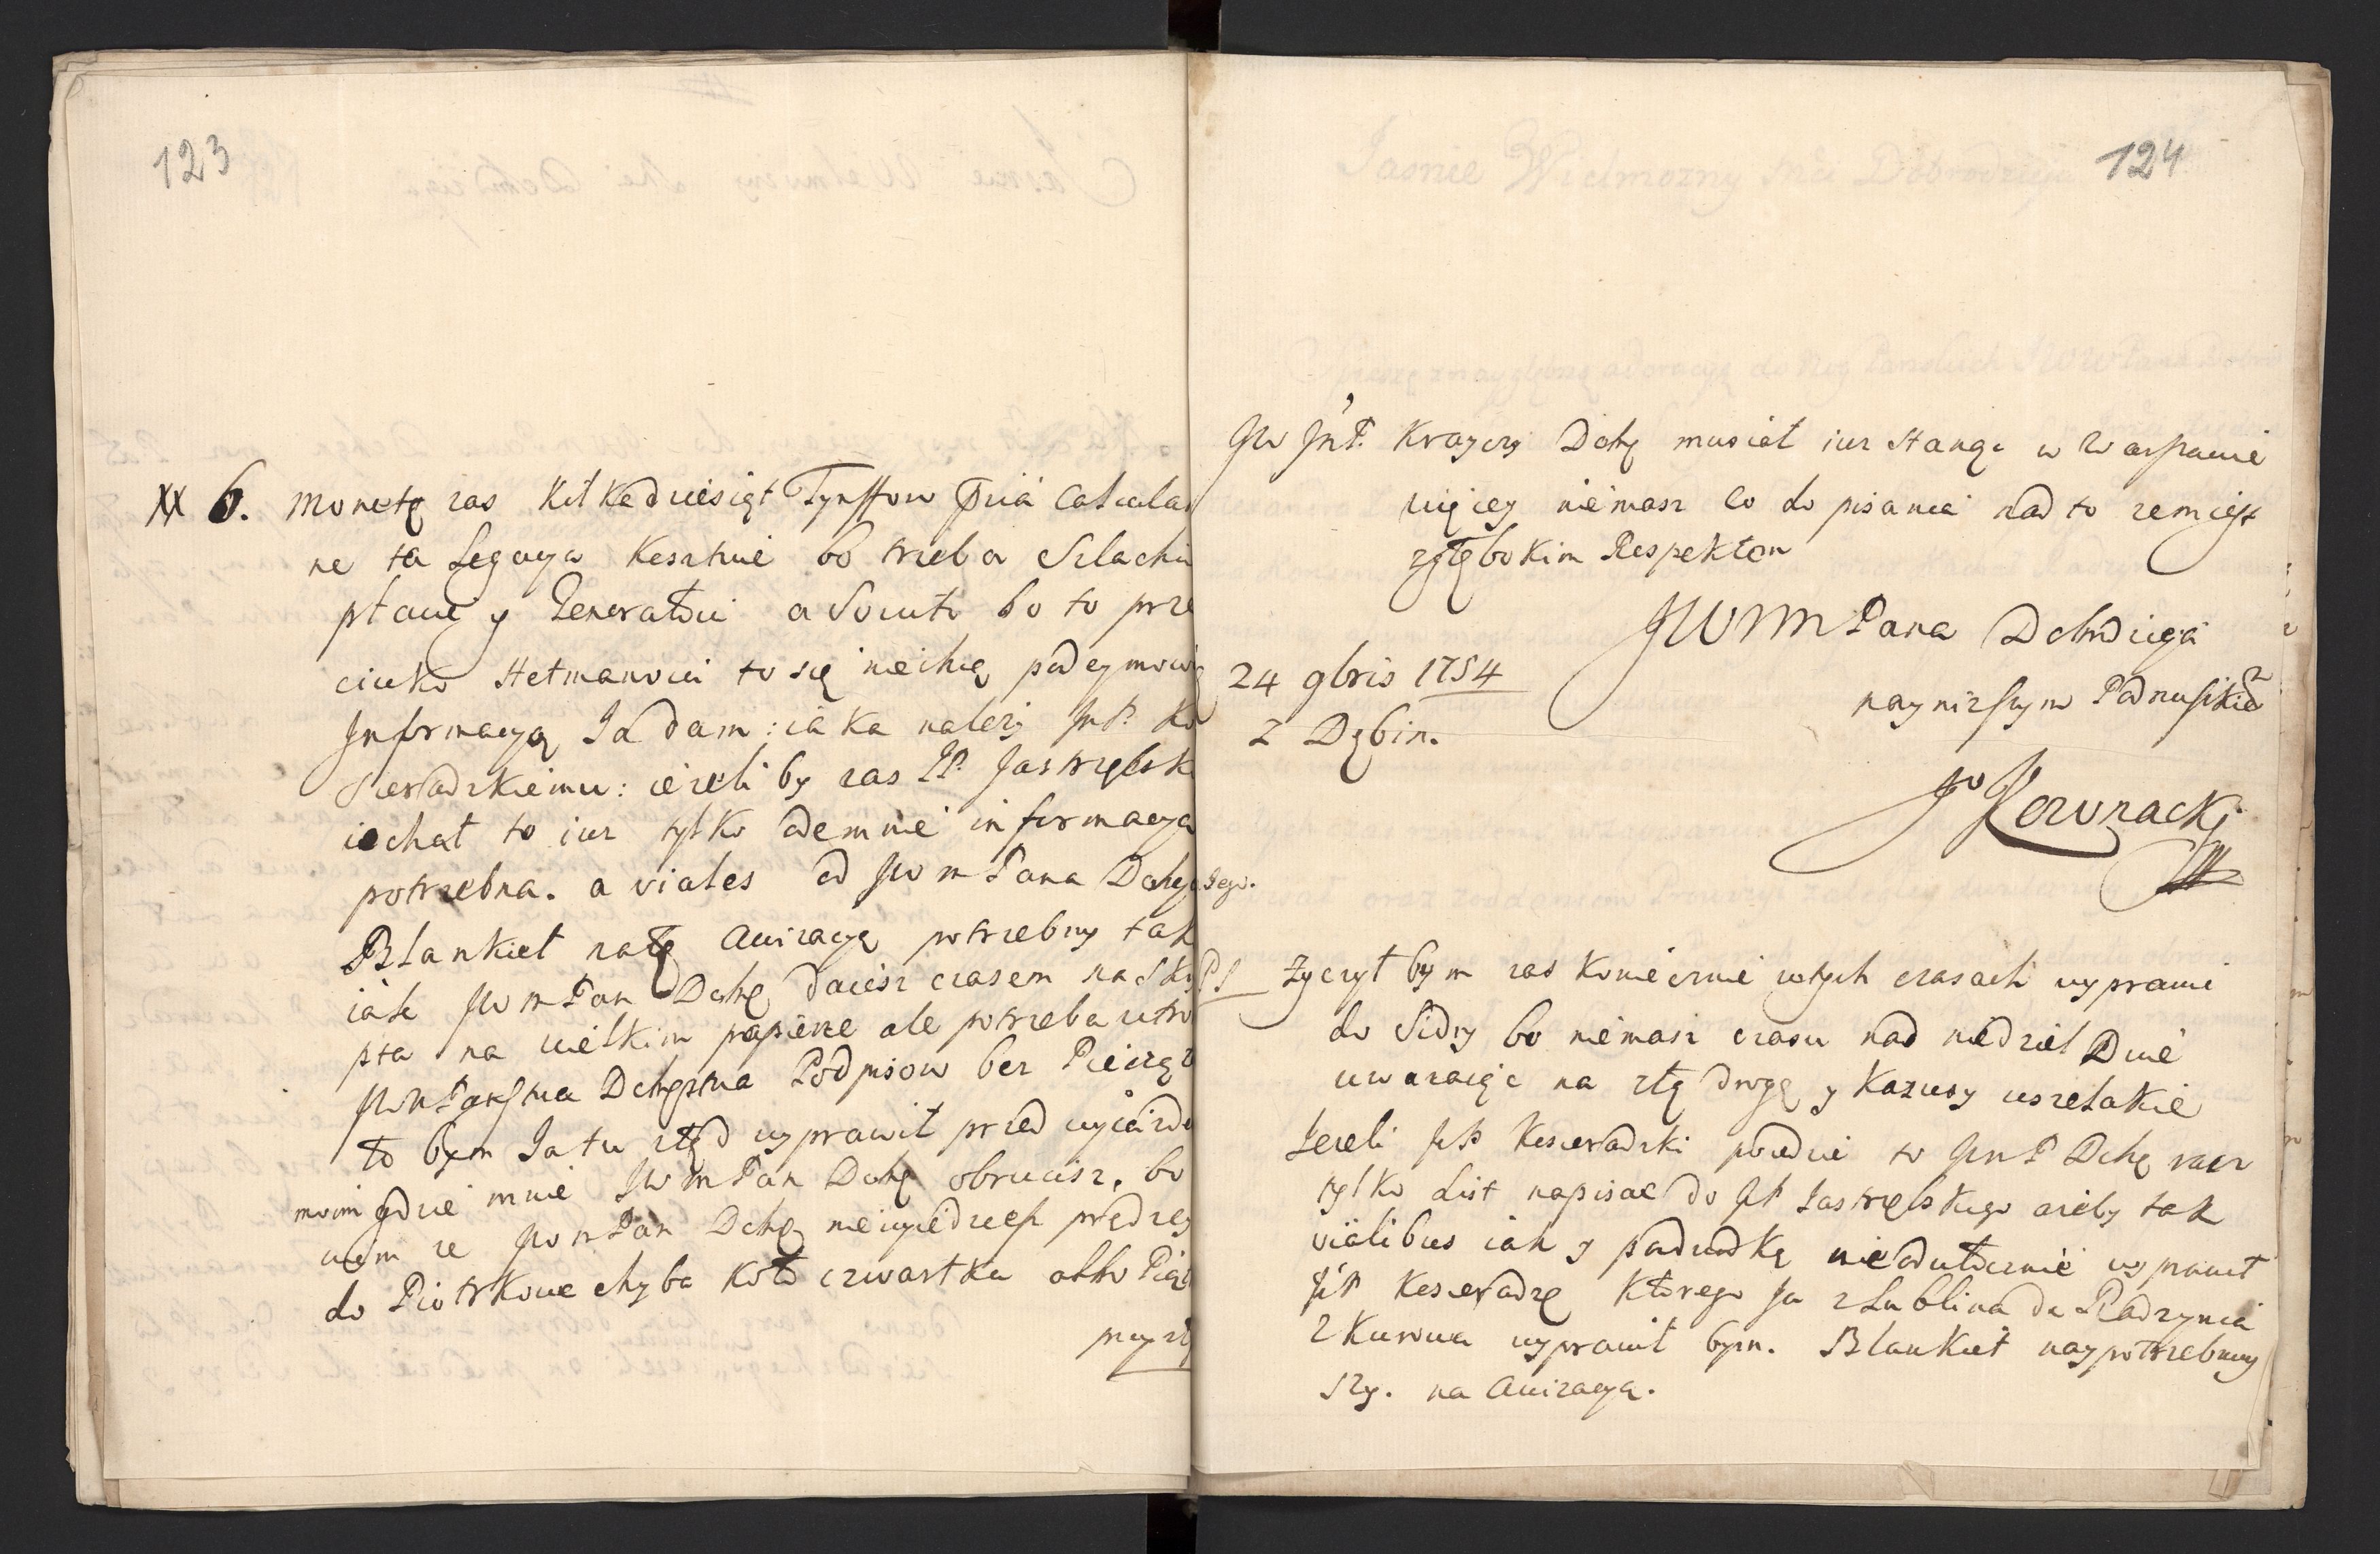 123
XX 6. Monetę zas kilkadziesiąt Tynffow
ne ta Legacya bo trzeba Szlachci
płacic y Generałowi a Socuto bo to prze
ciwko Hetmanowi to się niechcę podeymowa
Jnformacyą Ja dam: iaka nalezy JmP. Ko
Sieradzkiemu: iezeli by zas JP. Jastrzębsk
iechał to iuz tylko odemnie informacya
potrzebna. a viales od JWmPana Dobrg
Blankiet na tę Awizacyą potrzebny tak
iak JWmPan Dobrg daiesz czasem na
pta na wielkim papierze ale potrzeba
Podpisow bez Pieczęt
to bym Ja tu ztąd wyprawił przed wyiazde
moim gdzie mnie JWmPan Dobrg obrucisz, bo
wiem ze JWmPan Dobrg niewyiedziesz prędzey
do Piotrkowa chyba koło czwartku albo Piąt
przysz
124
JW JmP. Krayczy Dobrg musiał iuz stanąc w Warszawie
więcey niemasz co do pisania nad to zem iest
zgłębokim Respektem
JWMPana Dobrodzieja
24 9bris 1754
z Dębin.
nayniższym Podnuszkiem
J Kownacki
PS Zyczył bym zas koniecznie wtych czasach wyprawic
do Sidry bo niemasz czasu nad niedziel Dwie
uwazaiąc na złą drogę y kazusy wszelakie
Jezeli JP Kesieradzki poiedzie to JWmP Dobrg racz
tylko List napisac do JP Jastrzębskego azeby tak
vialibus iak y podwodką nieodwłocznie wyprawił
JP Kesieradzę ktorego Ja zLublina do Radzynia
zKurowa wyprawił bym. Blankiet naypotrzebniey
szy. na Awizacyą.